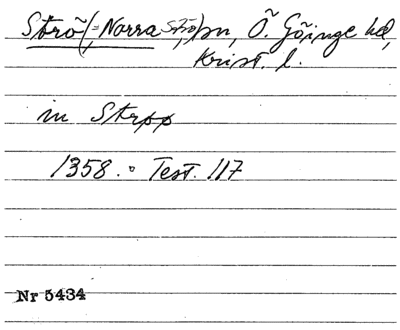 Strö (= Norra Strö) sn, Ö. Göinge hd,
Krist. l.
in Strøø
1358. Test. 117
Nr 5434